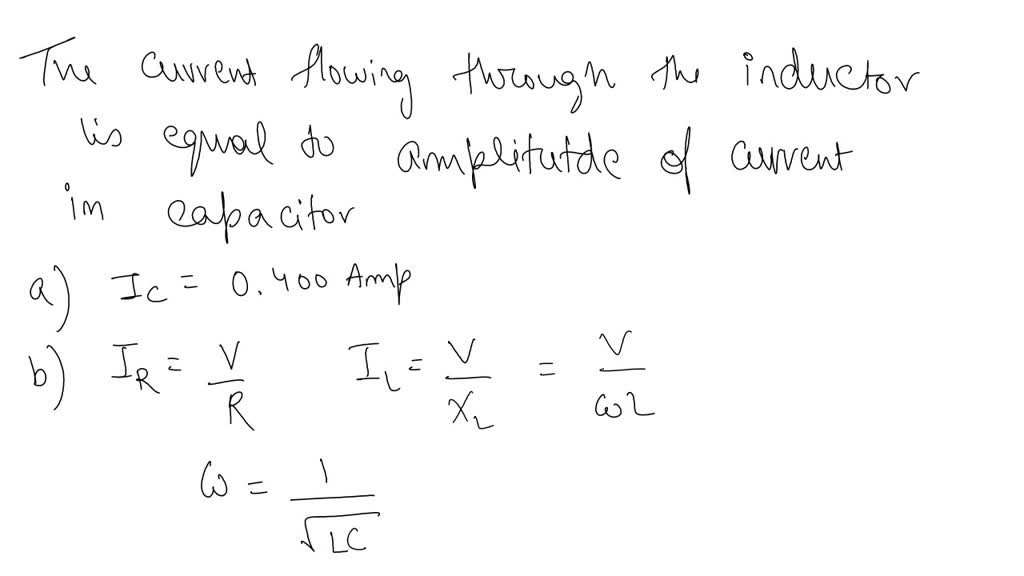 The current flowing through the inductor
is equal to amplitutde of current
in capacitor
a) I_C = 0.400 Amp
b) I_R = V/R I_L = V/X_L = V/ωL
ω = 1/√LC